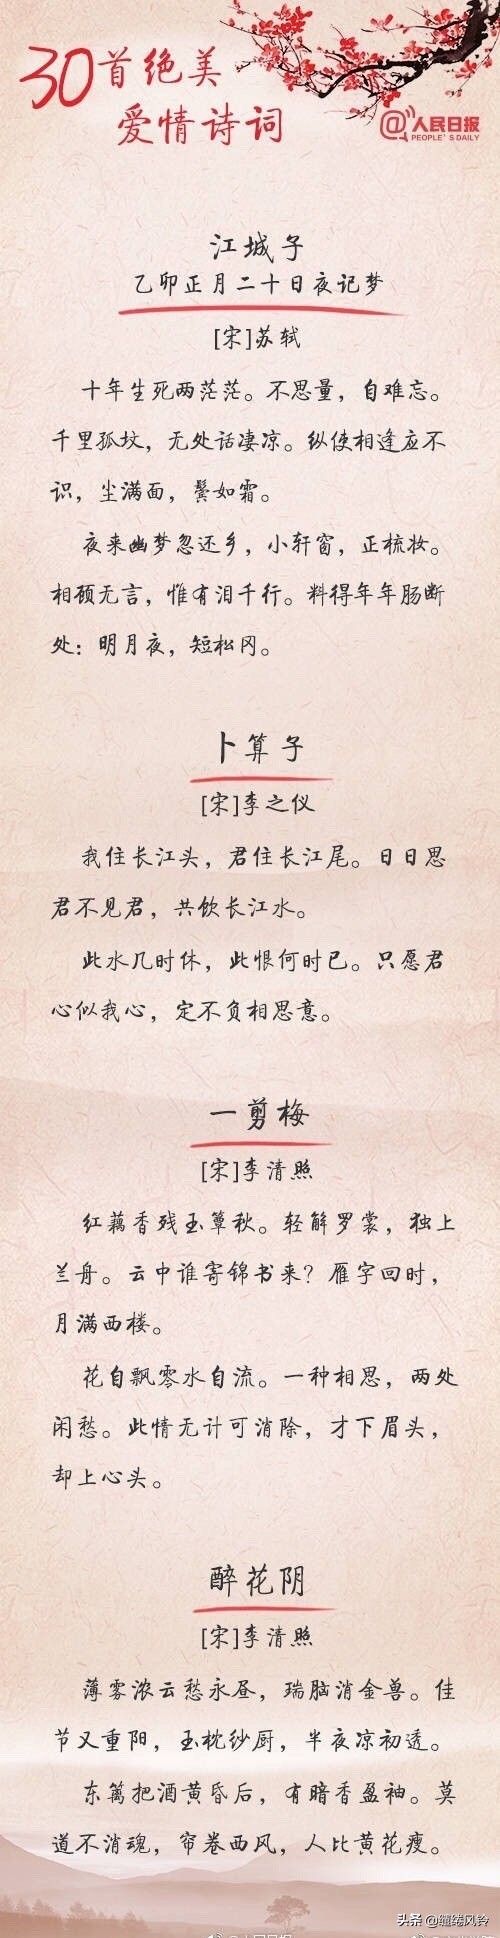 30首绝美
爱情诗词
@人民日报
PEOPLE'S DAILY
江城子
乙卯正月二十日夜记梦
[宋]苏轼
十年生死两茫茫。不思量，自难忘。
千里孤坟，无处话凄凉。纵使相逢应不
识，尘满面，鬓如霜。
夜来幽梦忽还乡，小轩窗，正梳妆。
相顾无言，惟有泪千行。料得年年肠断
处：明月夜，短松冈。
卜算子
[宋]李之仪
我住长江头，君住长江尾。日日思
君不见君，共饮长江水。
此水几时休，此恨何时已。只愿君
心似我心，定不负相思意。
一剪梅
[宋]李清照
红藕香残玉簟秋。轻解罗裳，独上
兰舟。云中谁寄锦书来？雁字回时，
月满西楼。
花自飘零水自流。一种相思，两处
闲愁。此情无计可消除，才下眉头，
却上心头。
醉花阴
[宋]李清照
薄雾浓云愁永昼，瑞脑消金兽。佳
节又重阳，玉枕纱厨，半夜凉初透。
东篱把酒黄昏后，有暗香盈袖。莫
道不消魂，帘卷西风，人比黄花瘦。
头条 @缱绻风铃